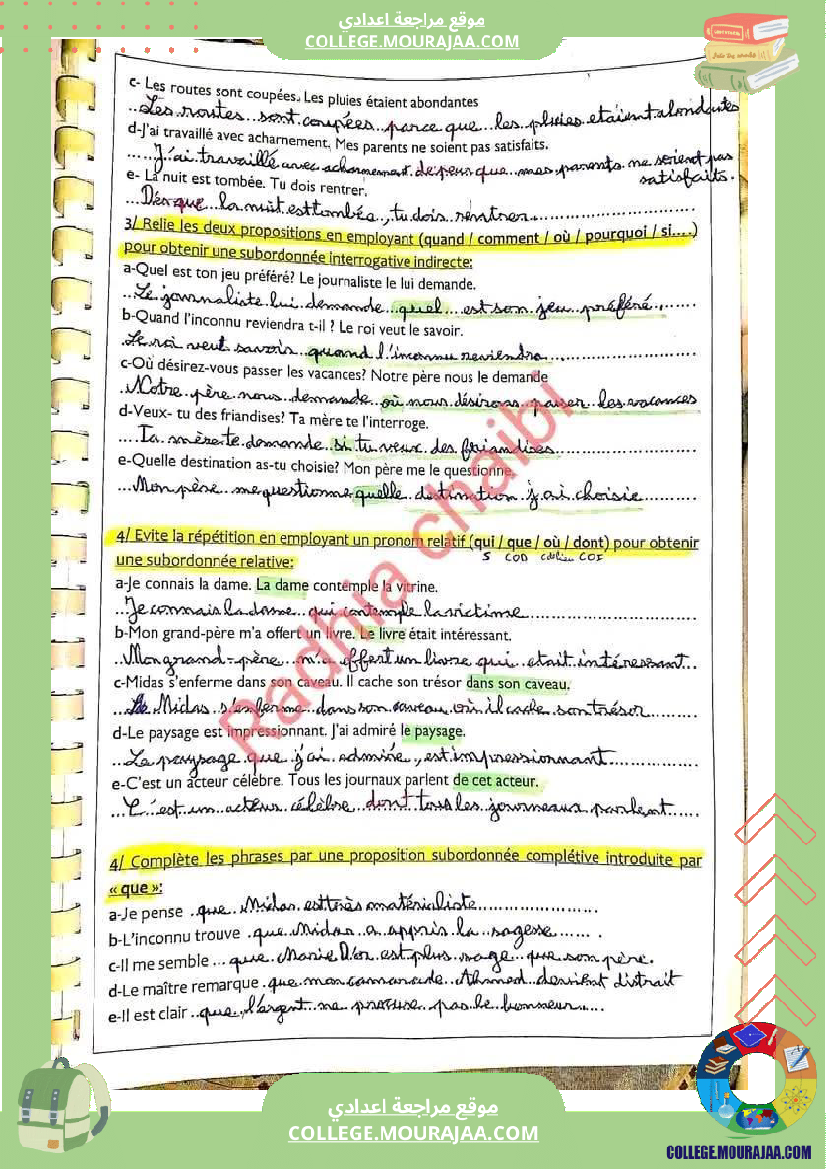 موقع مراجعة اعدادي
COLLEGE.MOURAJAA.COM
c- Les routes sont coupées. Les pluies étaient abondantes
..Les routes...sont coupées...parce que...les pluies étaient abondantes
d-J'ai travaillé avec acharnement. Mes parents ne soient pas satisfaits.
......J'ai travaillé avec acharnement. de peur que...mes parents ne soient pas
satisfaits.
e- La nuit est tombée. Tu dois rentrer.
...Dès que...la nuit est tombée., tu dois rentrer...
3/ Relie les deux propositions en employant (quand / comment / où / pourquoi / si....)
pour obtenir une subordonnée interrogative indirecte:
a-Quel est ton jeu préféré? Le journaliste le lui demande.
...Le journaliste lui demande...quel...est son jeu préféré.,......
b-Quand l'inconnu reviendra t-il ? Le roi veut le savoir.
.Le roi veut savoir..quand l'inconnu reviendra...
c-Où désirez-vous passer les vacances? Notre père nous le demande
..Notre père nous demande où nous désirons passer les vacances
d-Veux- tu des friandises? Ta mère te l'interroge.
....Ta mère te demande si tu veux des friandises...
e-Quelle destination as-tu choisie? Mon père me le questionne.
...Mon père me questionne quelle destination j'ai choisie...
4/ Evite la répétition en employant un pronom relatif (qui / que / où / dont) pour obtenir
S COD COI
une subordonnée relative:
a-Je connais la dame. La dame contemple la vitrine.
...Je connais la dame...qui contemple la victime...
b-Mon grand-père m'a offert un livre. Le livre était intéressant.
..Mon grand-père...m'a offert un livre qui était intéressant..
c-Midas s'enferme dans son caveau. Il cache son trésor dans son caveau.
...Le Midas s'enferme dans son caveau où il cache son trésor...
d-Le paysage est impressionnant. J'ai admiré le paysage.
...Le paysage que j'ai admiré, est impressionnant...
e-C'est un acteur célèbre. Tous les journaux parlent de cet acteur.
...C'est un acteur célèbre dont tous les journeaux parlent.....
4/ Complète les phrases par une proposition subordonnée complétive introduite par
« que »:
a-Je pense .que..Midas est très matérialiste...
b-L'inconnu trouve .que Midas a appris la sagesse.......
c-Il me semble ...que Marie D'or est plus sage que son père.
d-Le maître remarque .que mon camarade Ahmed devient distrait
e-Il est clair ..que l'argent ne procure pas le bonheur.....
Radhia chaibi
موقع مراجعة اعدادي
COLLEGE.MOURAJAA.COM
COLLEGE.MOURAJAA.COM